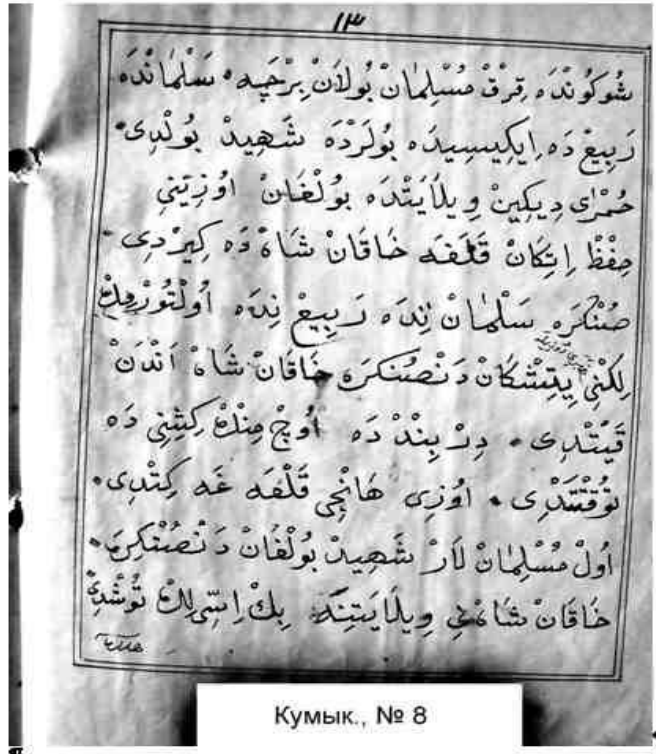 ١٣
شوكوُنْدَه قِرْقْ مُسْلِمَانْ بُولاَنْ بِرْچَپه سَلْمَانْدَه
رَبِيعْ دَه اِيكِيسِيدَه بُولَرْدَه شَهِيدْ بُولْدِى
حُمْرَى دِيكِينْ وِيلاَيَتْدَه بُولْغَانْ اوُزِيَنِى
حِفْظْ اِتِكَانْ قَلَعَه خَاقَانْ شَاهْ دَه كِيرْدِى
صُنْكرَه سَلْمَانْ نِدَه رَبِيعْ نِدَه اُولْتُورْمِكْ
لِكْنِى يِتِشْكَانْ دَنْصُنكرَه خَاقَانْ شَاهْ اَنْدَنْ
قَيْتْدِى دِرْبِنْدْ دَه اُوچْ مِنْكْ كِشِنِى دَه
تُوقْتَتْدِى اوُزِى هَانْجِى قَلْعَه غَه كِتْدِى
اُولْ مُسْلِمَانْ لَارْ شَهِيدْ بُولْغَانْ دَنْصُنْكرَه
خَاقَانْ شَاهْ نِي وِيلاَيَتِنَه بِكْ اِسِّى لِكْ تُوشْدِى
Кумык., № 8